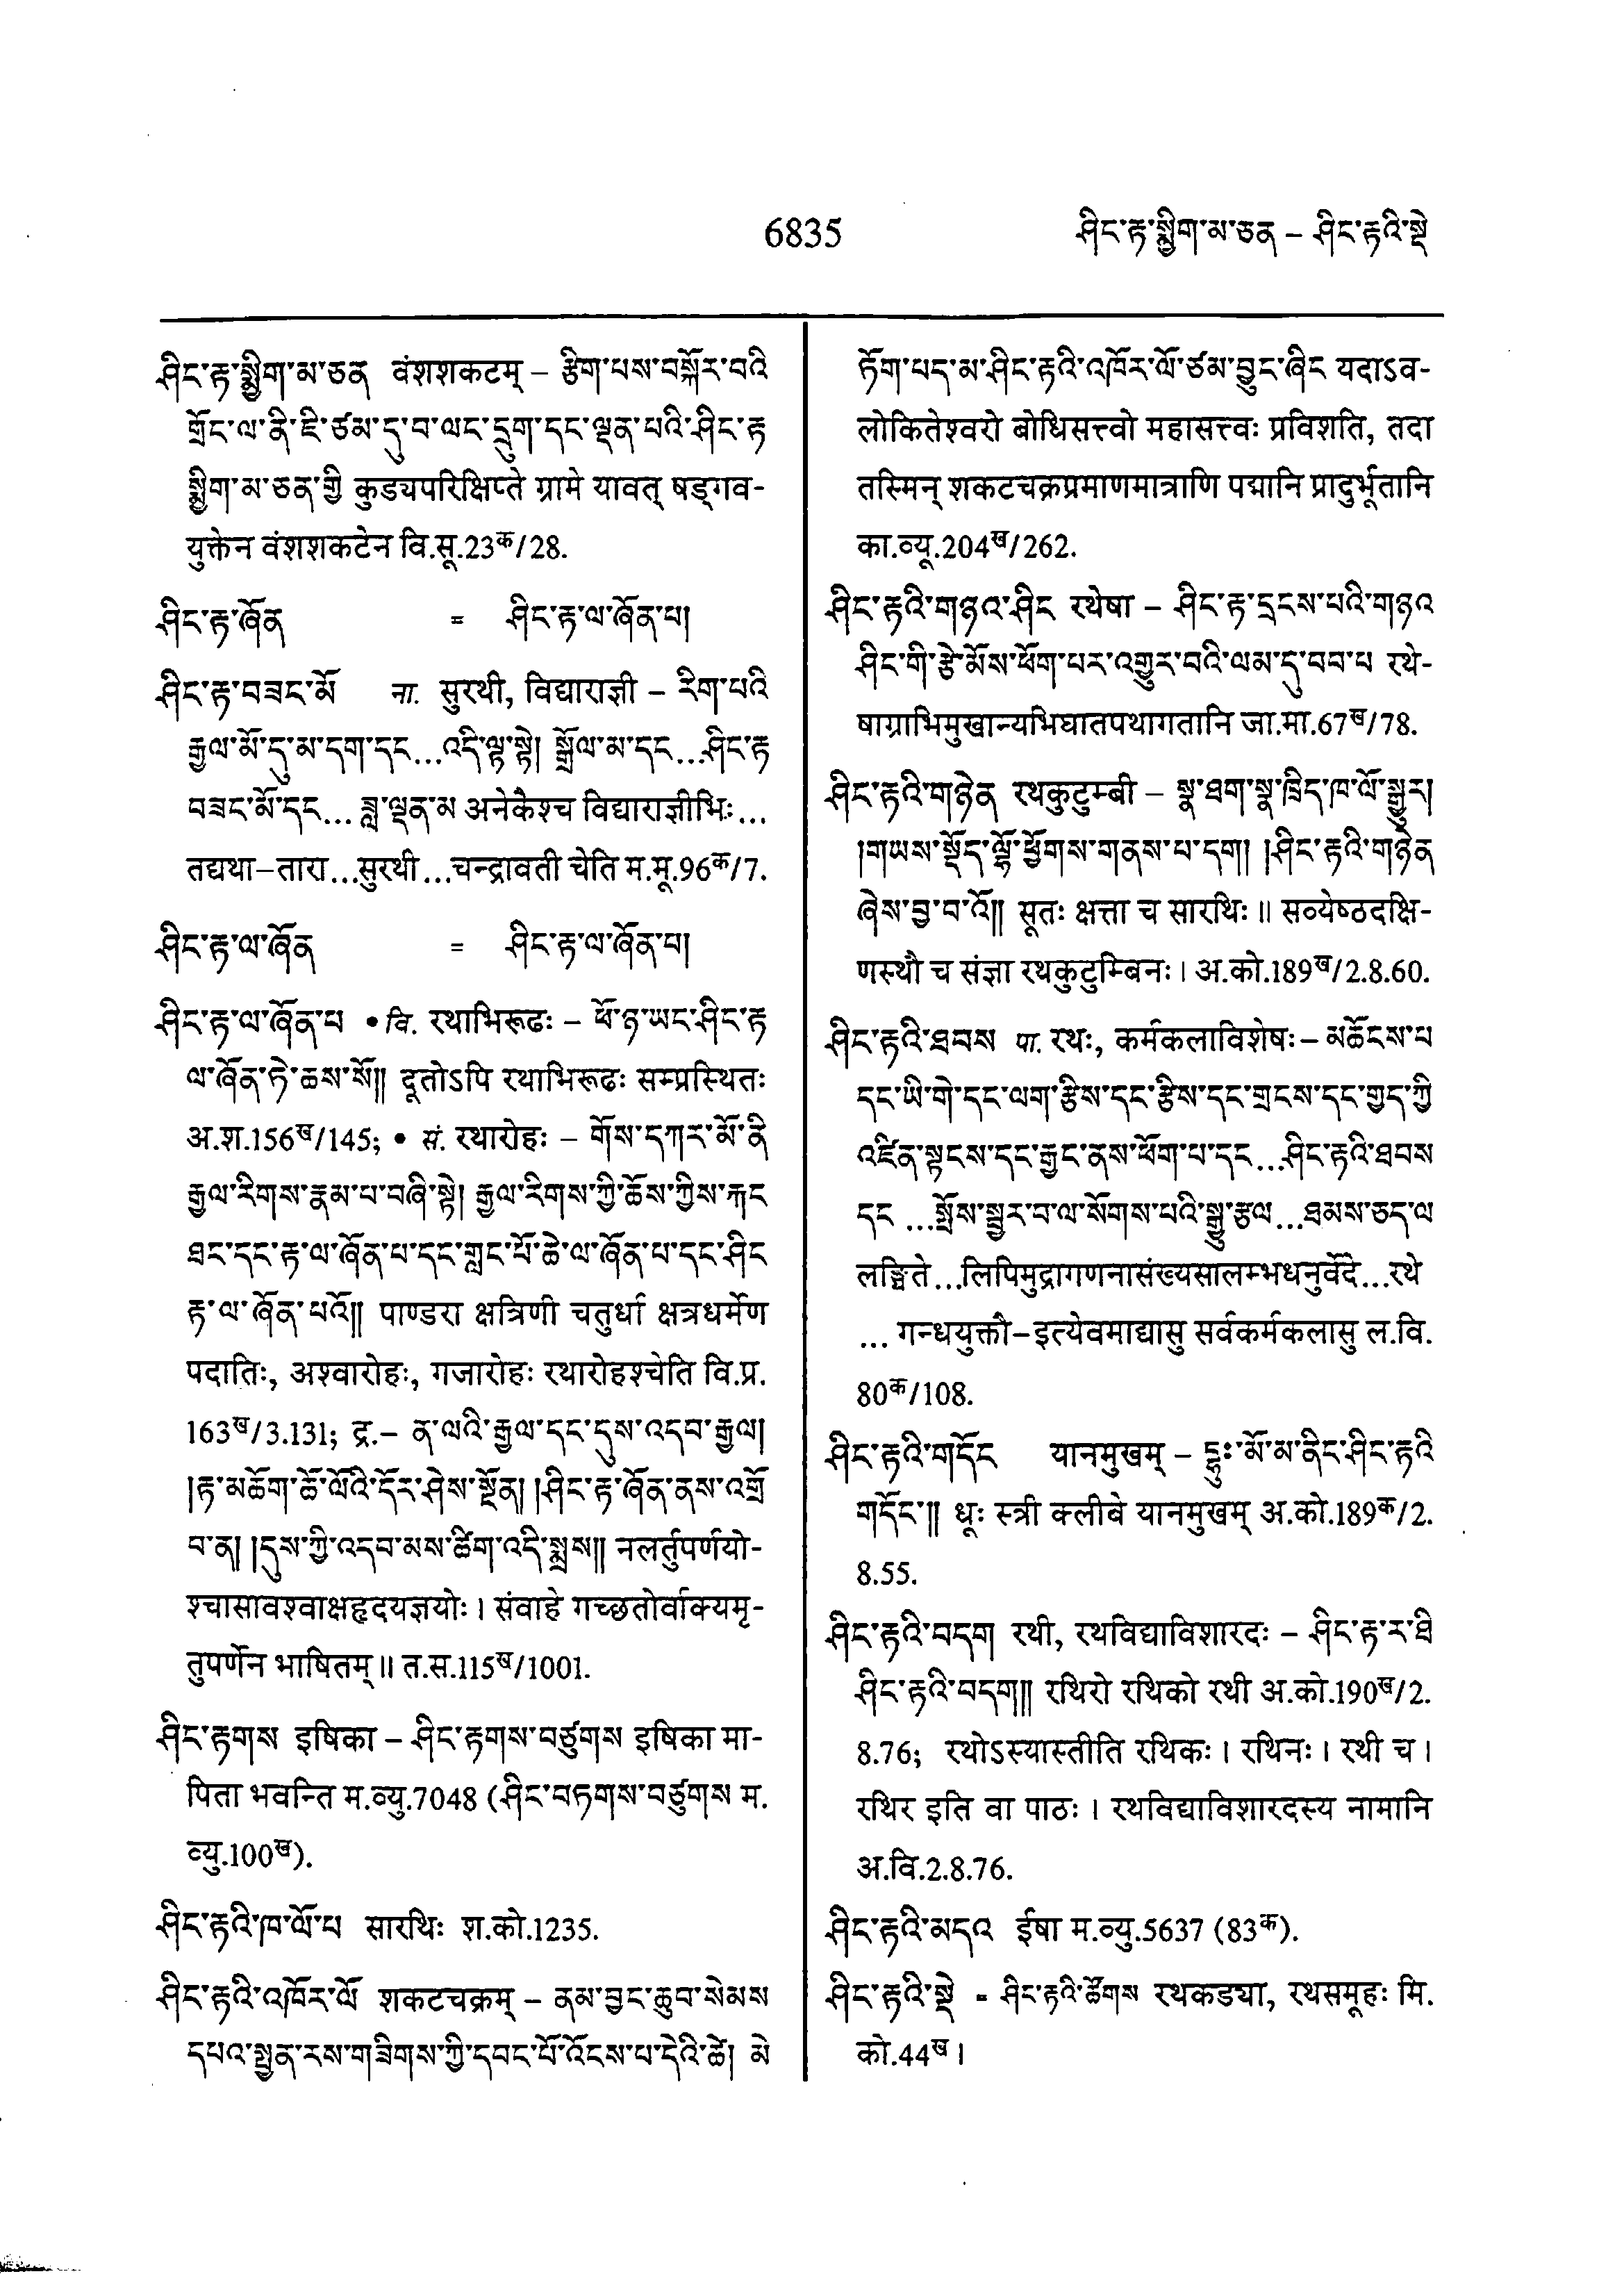 6835
ཤིང་རྟ་སྨྱིག་མ་ཅན – ཤིང་རྟའི་སྡེ
ཤིང་རྟ་སྨྱིག་མ་ཅན वंशशकटम् – རྩིག་པས་བསྐོར་བའི
གྲོང་ལ་ནི་ཇི་ཙམ་དུ་བ་ལང་དྲུག་དང་ལྡན་པའི་ཤིང་རྟ
སྨྱིག་མ་ཅན་གྱི कुड्यपरिक्षिप्ते ग्रामे यावत् षड्गव-
युक्तेन वंशशकटेन वि.सू.23क/28.
ཤིང་རྟ་ཞོན = ཤིང་རྟ་ལ་ཞོན་པ།
ཤིང་རྟ་བཟང་མོ ना. सुरथी, विद्याराज्ञी – རིག་པའི
རྒྱལ་མོ་དུ་མ་དག་དང...འདི་ལྟ་སྟེ། སྒྲོལ་མ་དང...ཤིང་རྟ
བཟང་མོ་དང... ཟླ་ལྡན་མ अनेकैश्च विद्याराज्ञीभिः...
तद्यथा–तारा...सुरथी...चन्द्रावती चेति म.मू.96क/7.
ཤིང་རྟ་ལ་ཞོན = ཤིང་རྟ་ལ་ཞོན་པ།
ཤིང་རྟ་ལ་ཞོན་པ • वि. रथाभिरूढः – ཕོ་ཉ་ཡང་ཤིང་རྟ
ལ་ཞོན་ཏེ་ཆས་སོ།། दूतोऽपि रथाभिरूढः सम्प्रस्थितः
अ.श.156ख/145; • सं. रथारोहः – གོས་དཀར་མོ་ནི
རྒྱལ་རིགས་རྣམ་པ་བཞི་སྟེ། རྒྱལ་རིགས་ཀྱི་ཆོས་ཀྱིས་རྐང
ཐང་དང་རྟ་ལ་ཞོན་པ་དང་གླང་པོ་ཆེ་ལ་ཞོན་པ་དང་ཤིང
རྟ་ལ་ཞོན་པའོ།། पाण्डरा क्षत्रिणी चतुर्धा क्षत्रधर्मेण
पदातिः, अश्वारोहः, गजारोहः रथारोहश्चेति वि.प्र.
163ख/3.131; द्र.– ན་ལའི་རྒྱལ་དང་དུས་འདབ་རྒྱལ།
།རྟ་མཆོག་ཆོ་ལོའི་དོར་ཤེས་སྔོན། །ཤིང་རྟ་ཞོན་ནས་འགྲོ
བ་ན། །དུས་ཀྱི་འདབ་མས་ཚིག་འདི་སྨྲས།། नलर्तुपर्णयो-
श्चासावश्वाक्षहृदयज्ञयोः । संवाहे गच्छतोर्वाक्यमृ-
तुपर्णेन भाषितम् ॥ त.स.115ख/1001.
ཤིང་རྟགས इषिका – ཤིང་རྟགས་བཙུགས इषिका मा-
पिता भवन्ति म.व्यु.7048 (ཤིང་བཏགས་བཙུགས म.
व्यु.100ख).
ཤིང་རྟའི་ཁ་ལོ་པ सारथिः श.को.1235.
ཤིང་རྟའི་འཁོར་ལོ शकटचक्रम् – ནམ་བྱང་ཆུབ་སེམས
དཔའ་སྤྱན་རས་གཟིགས་ཀྱི་དབང་པོ་འོངས་པ་དེའི་ཚེ། མེ
ཏོག་པད་མ་ཤིང་རྟའི་འཁོར་ལོ་ཙམ་བྱུང་ཞིང यदाऽव-
लोकितेश्वरो बोधिसत्त्वो महासत्त्वः प्रविशति, तदा
तस्मिन् शकटचक्रप्रमाणमात्राणि पद्मानि प्रादुर्भूतानि
का.व्यू.204ख/262.
ཤིང་རྟའི་གཉའ་ཤིང रथेषा – ཤིང་རྟ་དྲངས་པའི་གཉའ
ཤིང་གི་རྩེ་མོས་ཕོག་པར་འགྱུར་བའི་ལམ་དུ་བབ་པ रथे-
षाग्राभिमुखान्यभिघातपथागतानि जा.मा.67ख/78.
ཤིང་རྟའི་གཉེན रथकुटुम्बी – སྣ་ཐག་སྣ་ཁྲིད་ཁ་ལོ་སྒྱུར།
།གཡས་སྡོད་ལྷོ་ཕྱོགས་གནས་པ་དག། །ཤིང་རྟའི་གཉེན
ཞེས་བྱ་བ་འོ།། सूतः क्षत्ता च सारथिः ॥ सव्येष्ठदक्षि-
णस्थौ च संज्ञा रथकुटुम्बिनः । अ.को.189ख/2.8.60.
ཤིང་རྟའི་ཐབས पा. रथः, कर्मकलाविशेषः – མཆོངས་པ
དང་ཡི་གེ་དང་ལག་རྩིས་དང་རྩིས་དང་གྲངས་དང་གྱད་ཀྱི
འཛིན་སྟངས་དང་རྒྱང་ནས་ཕོག་པ་དང...ཤིང་རྟའི་ཐབས
དང ...སྤོས་སྦྱར་བ་ལ་སོགས་པའི་སྒྱུ་རྩལ...ཐམས་ཅད་ལ
लङ्घिते...लिपिमुद्रागणनासंख्यसालम्भधनुर्वेदे...रथे
... गन्धयुक्तौ–इत्येवमाद्यासु सर्वकर्मकलासु ल.वि.
80क/108.
ཤིང་རྟའི་གདོང यानमुखम् – དྷུཿ་མོ་མ་ནིང་ཤིང་རྟའི
གདོང་།། धूः स्त्री क्लीबे यानमुखम् अ.को.189क/2.
8.55.
ཤིང་རྟའི་བདག रथी, रथविद्याविशारदः – ཤིང་རྟ་ར་ཐི
ཤིང་རྟའི་བདག།། रथिरो रथिको रथी अ.को.190ख/2.
8.76; रथोऽस्यास्तीति रथिकः । रथिनः । रथी च ।
रथिर इति वा पाठः । रथविद्याविशारदस्य नामानि
अ.वि.2.8.76.
ཤིང་རྟའི་མདའ ईषा म.व्यु.5637 (83क).
ཤིང་རྟའི་སྡེ = ཤིང་རྟའི་ཚོགས रथकड्या, रथसमूहः मि.
को.44ख ।